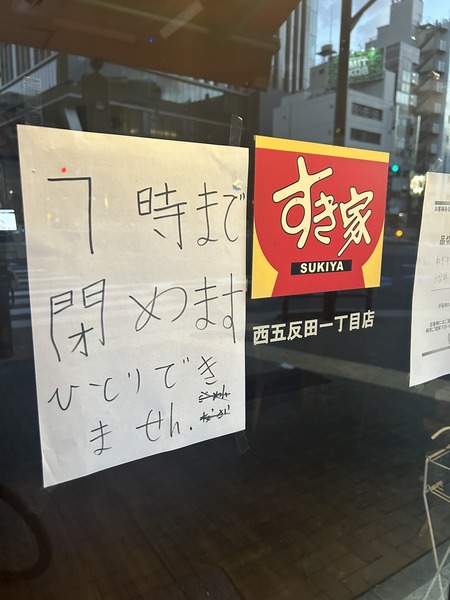 7 時まで
閉めます
ひとりでき
ません.
すき家
SUKIYA
西五反田一丁目店
品切